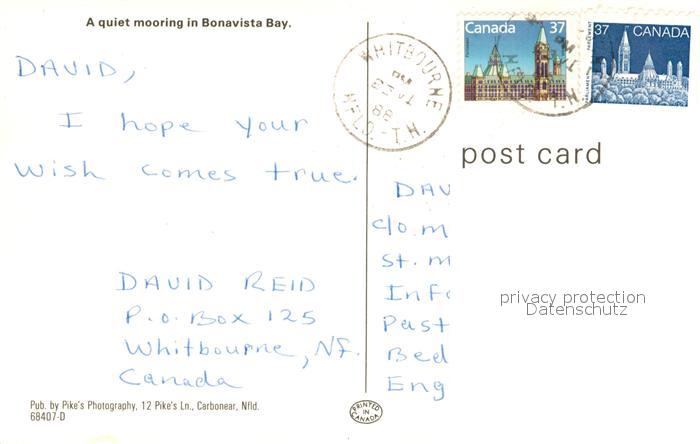 A quiet mooring in Bonavista Bay.
DAVID,
I hope your
wish comes true.
DAVID REID
P.O. BOX 125
Whitbourne, NF.
Canada
Pub. by Pike's Photography, 12 Pike's Ln., Carbonear, Nfld.
68407-D
PRINTED IN CANADA
WHITBOURNE
PM
23 VI
88
NFLD.-T.H.
Canada 37
37 CANADA
post card
DAV
c/o m
St. m
Inf
Past
Bed
Eng
privacy protection
Datenschutz